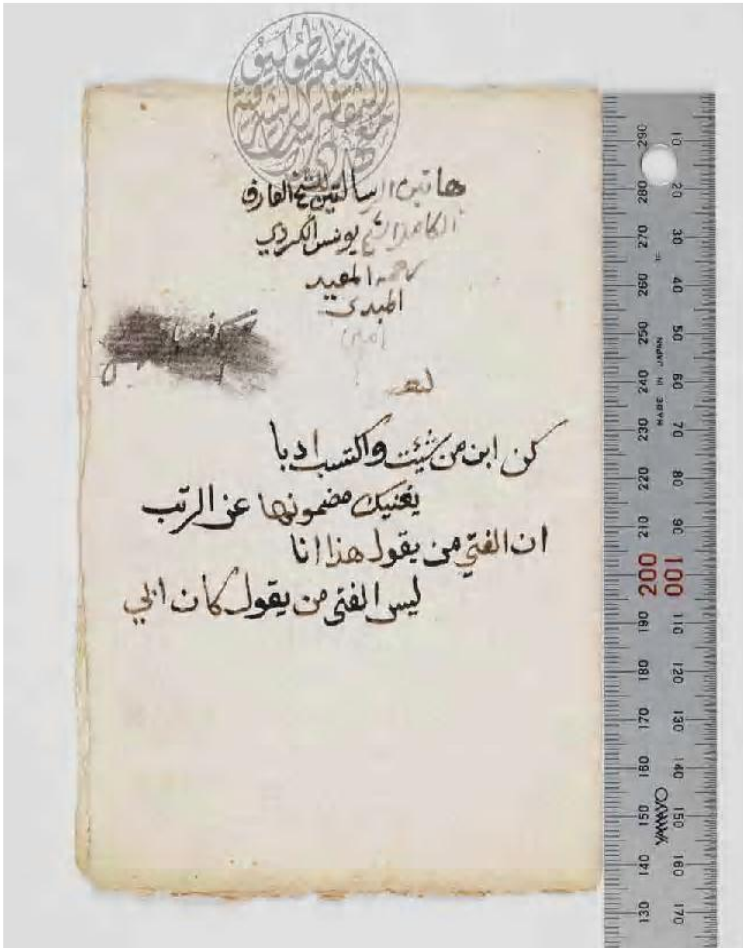 هاتين الرسالتين للشيخ العارف
الكامل الشيخ يونس الكردي
المعيد
المبدى
امين
كن ابن من شئت واكتسب ادبا
يغنيك مضمونها عن الرتب
ان الفتي من يقول هذا انا
ليس الفتى من يقول كان ابي
290 280 270 260 250 240 230 220 210 200 190 180 170 160 150 140 130
10 20 30 40 50 60 70 80 90 100 110 120 130 140 150 160 170
MADE IN JAPAN
YAMAYO